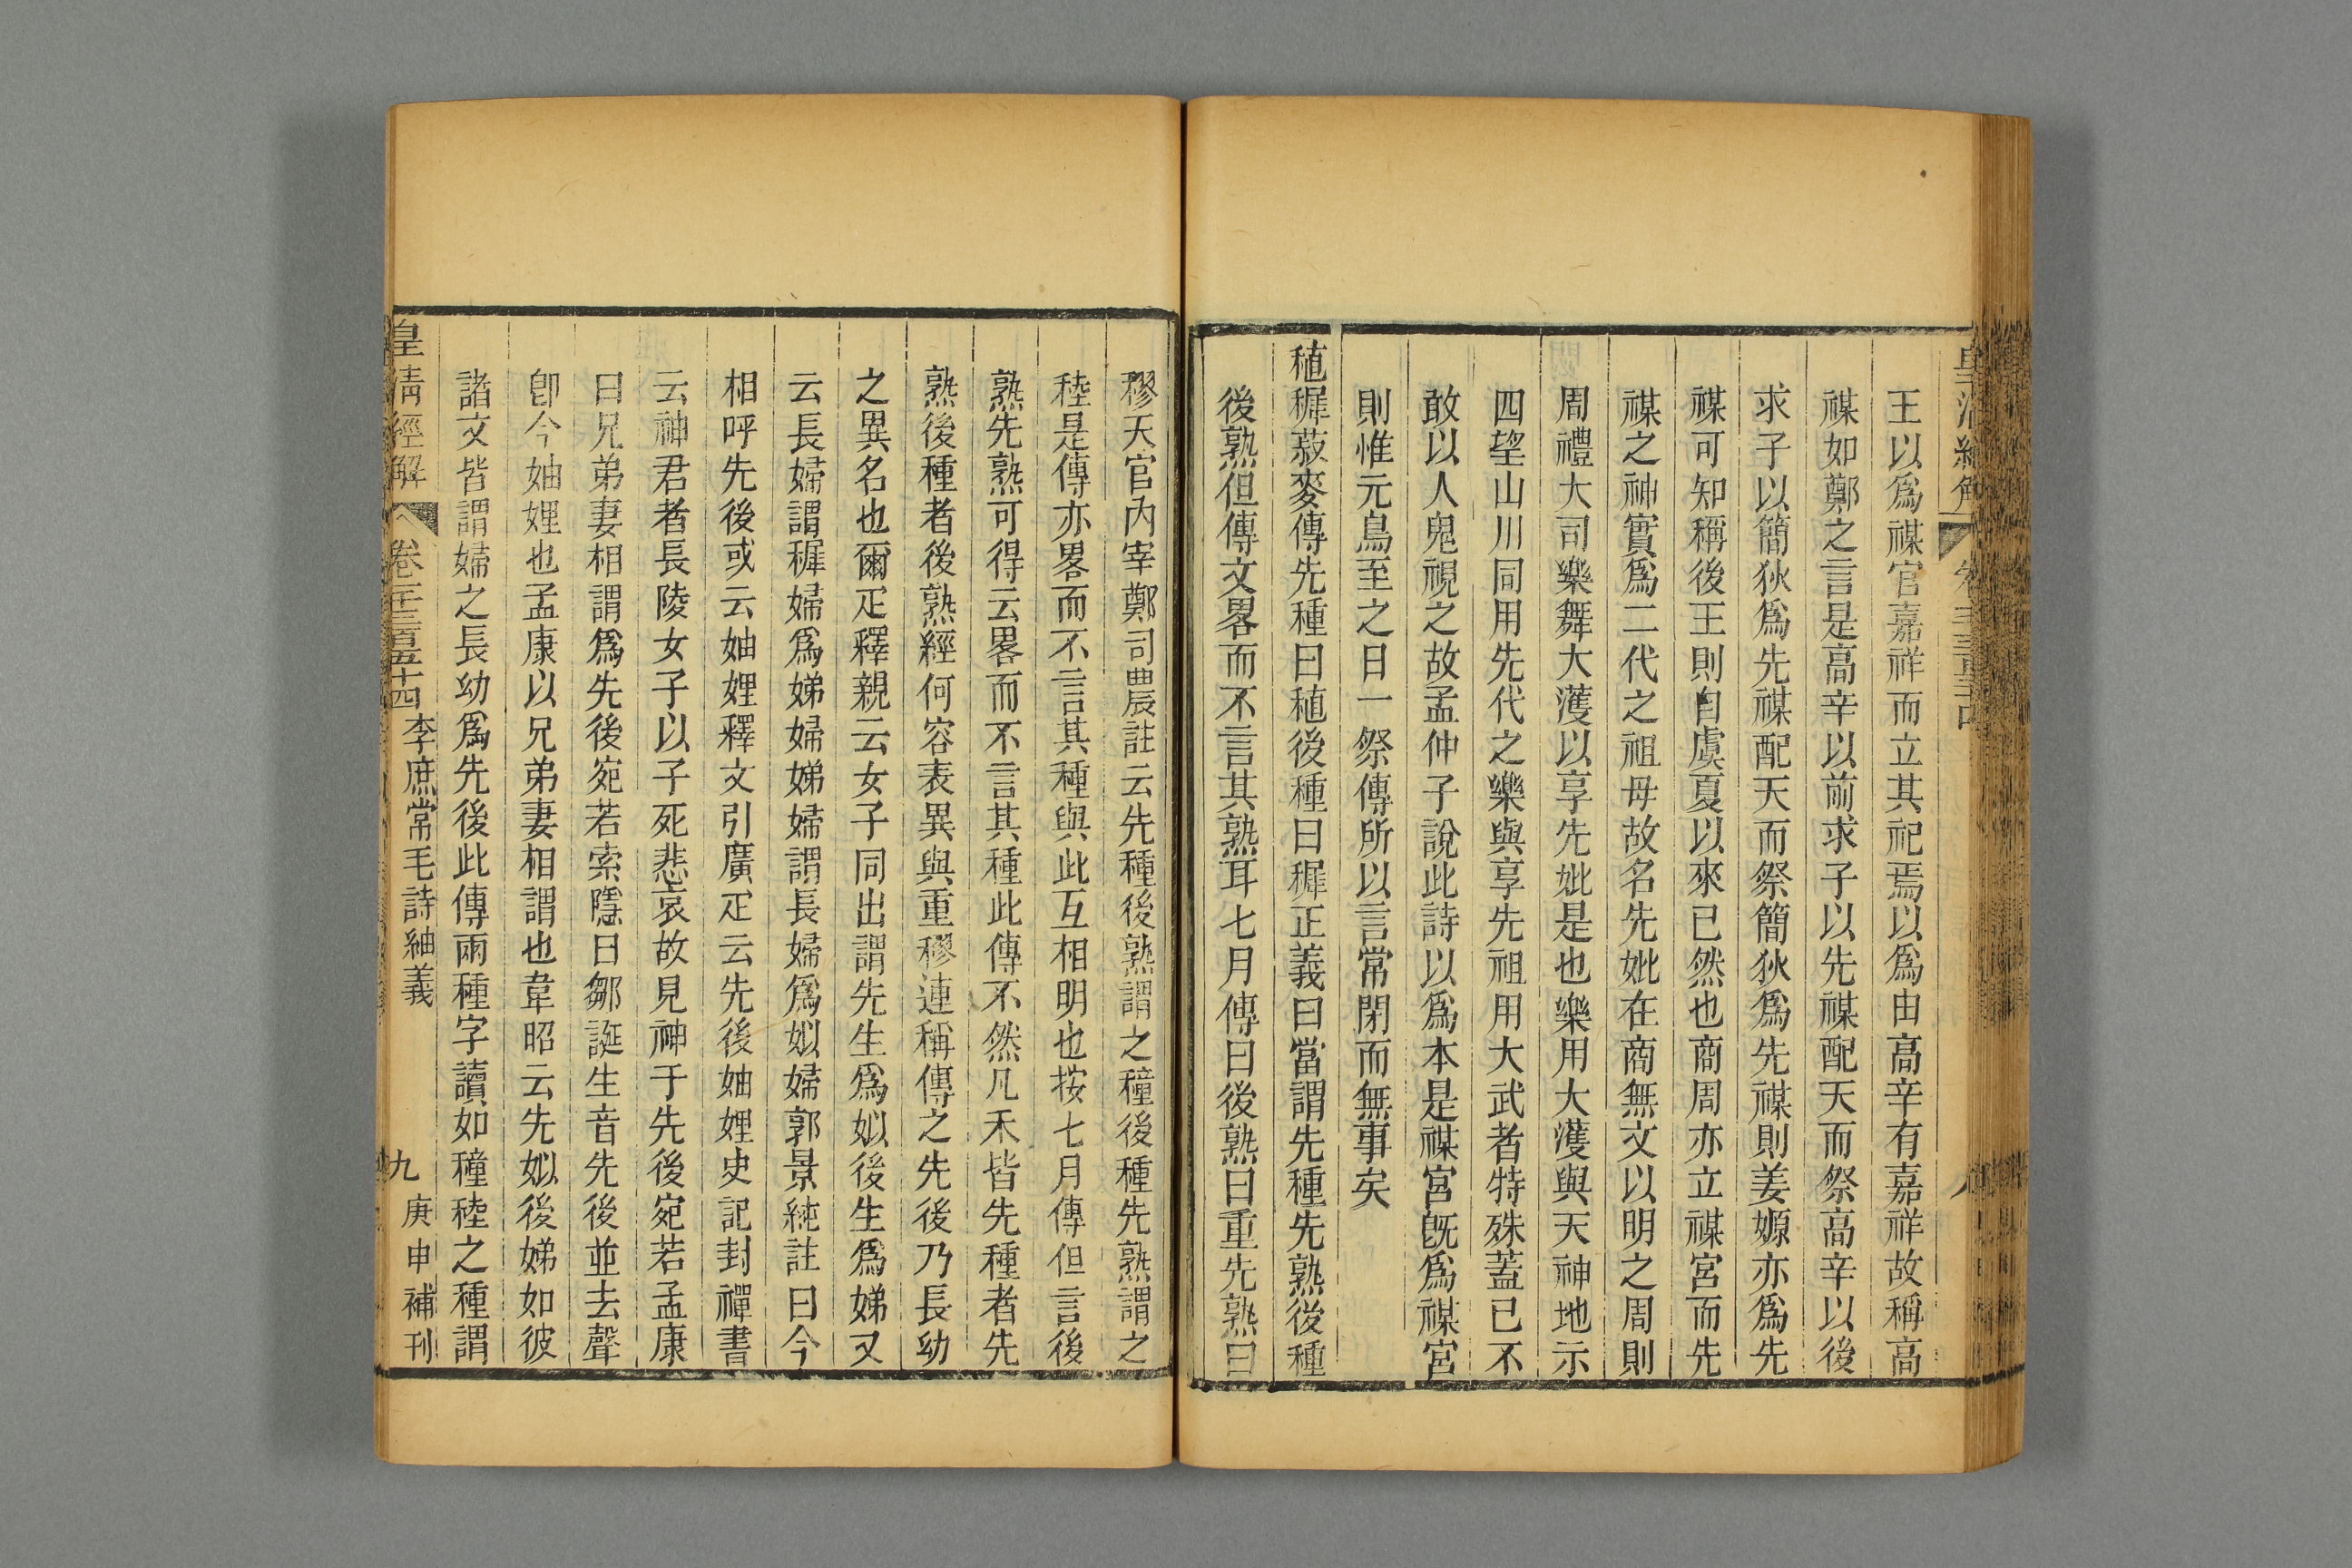 王以爲禖官嘉祥而立其祀焉以爲由高辛有嘉祥故稱高
禖如鄭之言是高辛以前求子以先禖配天而祭高辛以後
求子以簡狄爲先禖配天而祭簡狄爲先禖則姜嫄亦爲先
禖可知稱後王則自虞夏以來已然也商周亦立禖宮而先
禖之神實爲二代之祖母故名先妣在商無文以明之周則
周禮大司樂舞大濩以享先妣是也樂用大濩與天神地示
四望山川同用先代之樂與享先祖用大武者特殊蓋已不
敢以人鬼視之故孟仲子說此詩以爲本是禖宮旣爲禖宮
則惟元鳥至之日一祭傳所以言常閉而無事矣
稙穉菽麥傳先種曰稙後種曰穉正義曰當謂先種先熟後種
後熟但傳文畧而不言其熟耳七月傳曰後熟曰重先熟曰
穋天官內宰鄭司農註云先種後熟謂之穜後種先熟謂之
稑是傳亦畧而不言其種與此互相明也按七月傳但言後
熟先熟可得云畧而不言其種此傳不然凡禾皆先種者先
熟後種者後熟經何容表異與重穋連稱傳之先後乃長幼
之異名也爾疋釋親云女子同出謂先生爲姒後生爲娣又
云長婦謂穉婦爲娣婦娣婦謂長婦爲姒婦郭景純註曰今
相呼先後或云妯娌釋文引廣疋云先後妯娌史記封禪書
云神君者長陵女子以子死悲哀故見神于先後宛若孟康
曰兄弟妻相謂爲先後宛若索隱曰鄒誕生音先後並去聲
卽今妯娌也孟康以兄弟妻相謂也韋昭云先姒後娣如彼
諸文皆謂婦之長幼爲先後此傳兩種字讀如穜稑之種謂
皇清經解 卷一千三百五十四 李庶常毛詩紬義 九 庚申補刊